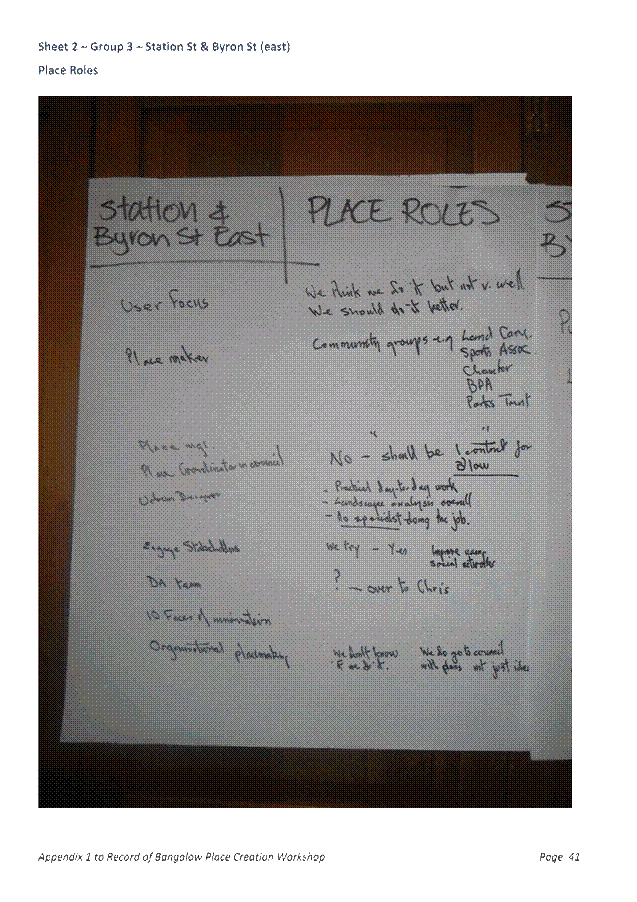 Sheet 2 ~ Group 3 ~ Station St & Byron St (east)
Place Roles
Station &
Byron St East
PLACE ROLES
User Focus
We think we do it but not v. well
We should do it better.
Place maker
Community groups e.g Land Care
Sports Assoc
Chamber
BPA
Parks Trust
Place mgr
Place Coordinator in council
No - should be 1 contact for
B'low
Urban Designer
- Practical day-to-day work
- Landscape analysis overall
- No specialist doing the job.
Engage Stakeholders
We try - Yes
Improve using
social networks
DA team
? - over to Chris
10 Faces of innovation
Organisational placemaking
We don't know
We do go to council
with plans not just idea
Appendix 1 to Record of Bangalow Place Creation Workshop
Page 41